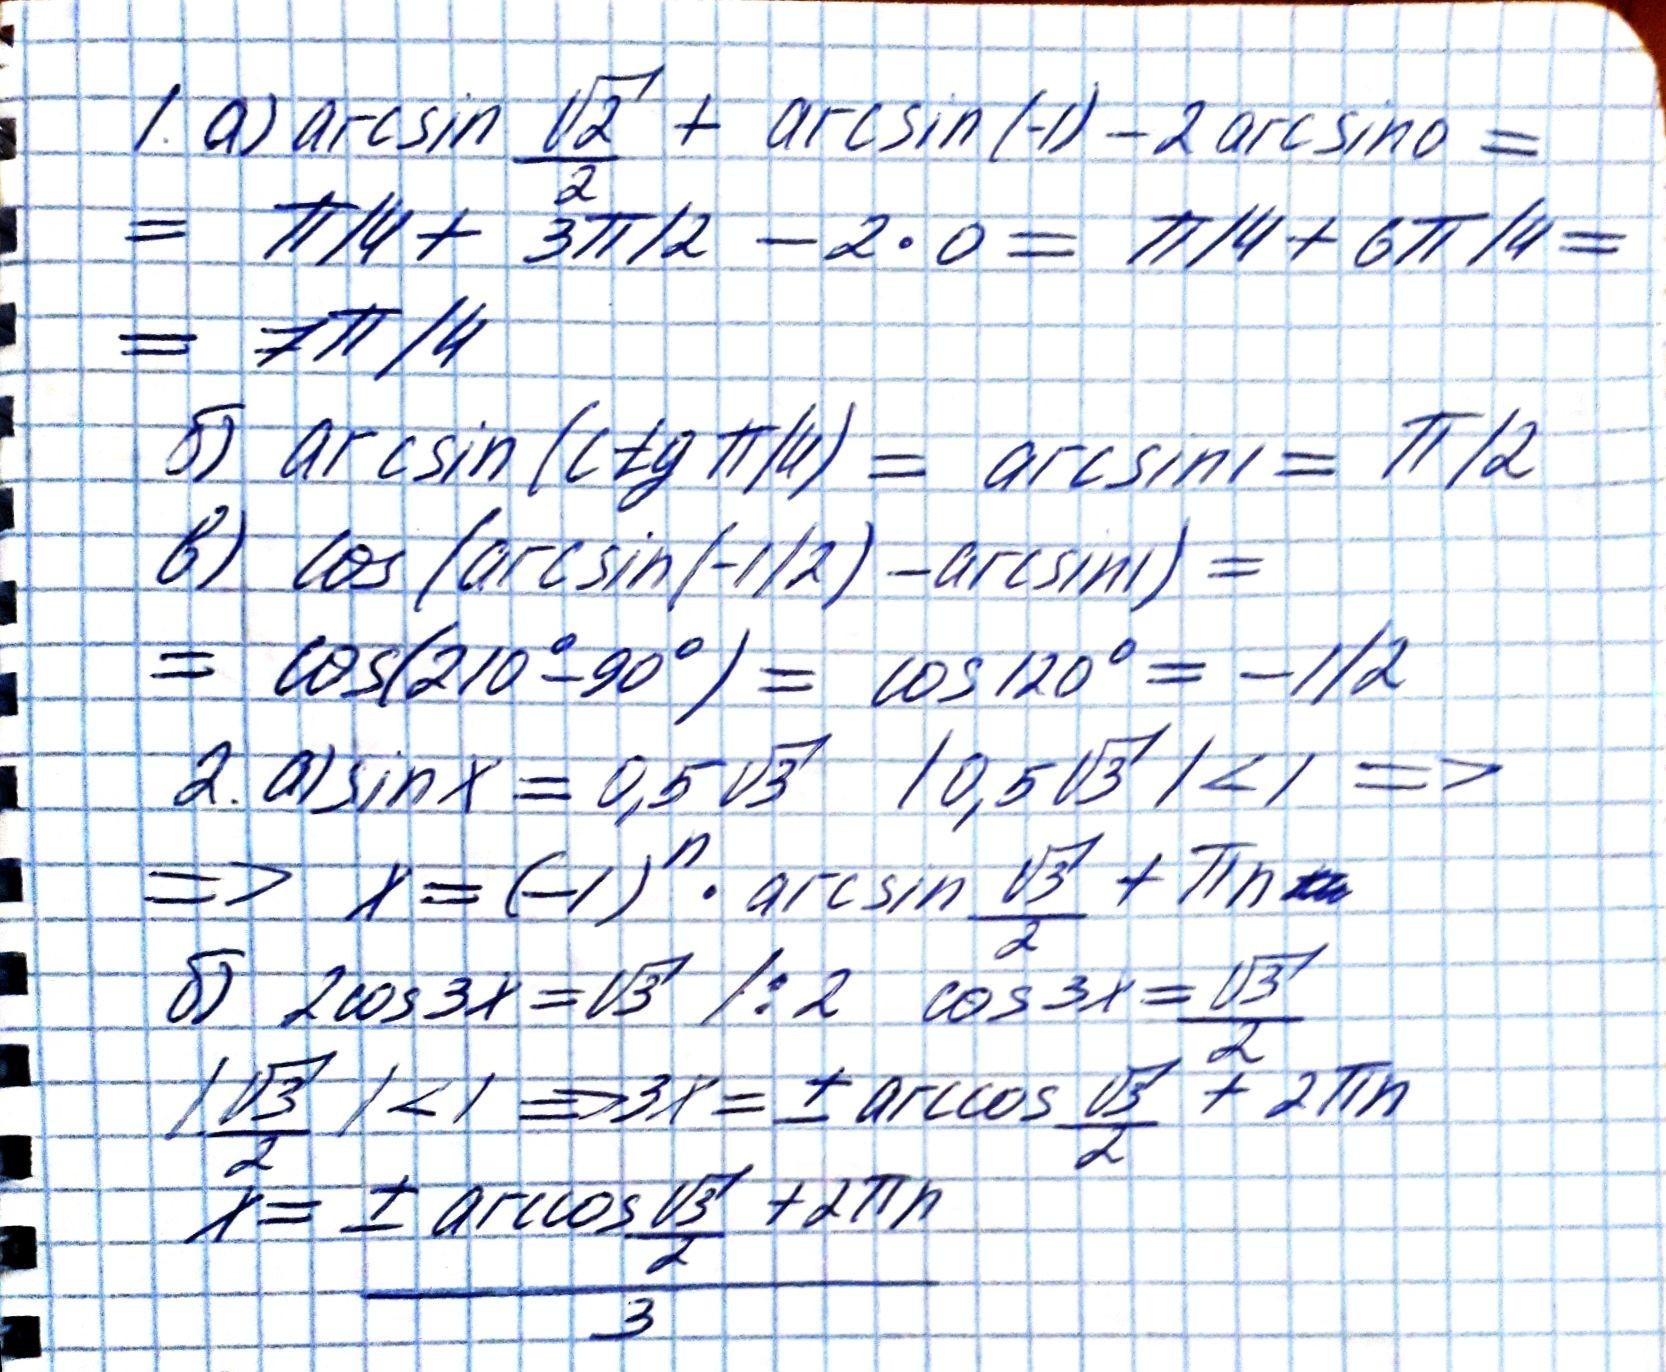 1. а) arcsin √2/2 + arcsin(-1) - 2arcsin0 =
= π/4 + 3π/2 - 2·0 = π/4 + 6π/4 =
= 7π/4
б) arcsin(ctg π/4) = arcsin1 = π/2
в) cos(arcsin(-1/2) - arcsin1) =
= cos(210° - 90°) = cos120° = -1/2
2. а) sinx = 0,5√3 |0,5√3| < 1 =>
=> x = (-1)ⁿ · arcsin √3/2 + πn
б) 2cos3x = √3 /:2 cos3x = √3/2
|√3/2| < 1 => 3x = ± arccos √3/2 + 2πn
x = (± arccos √3/2 + 2πn)/3